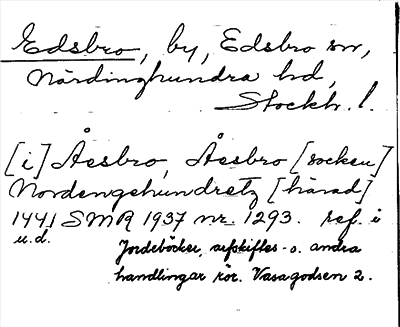 Edsbro, by, Edsbro sn,
Närdinghundra hd,
Stockh. l.
[i] Åesbro, Åesbro [socken]
Nordengehundretz [härad]
1441 SMR 1937 nr. 1293. ref. i
u.d.
Jordeböcker, arfskiftes- o. andra
handlingar rör. Vasagodsen 2.